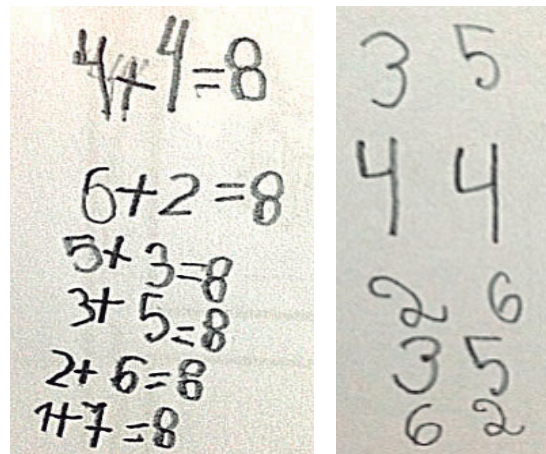 4+4=8
6+2=8
5+3=8
3+5=8
2+6=8
1+7=8
3 5
4 4
2 6
3 5
6 2